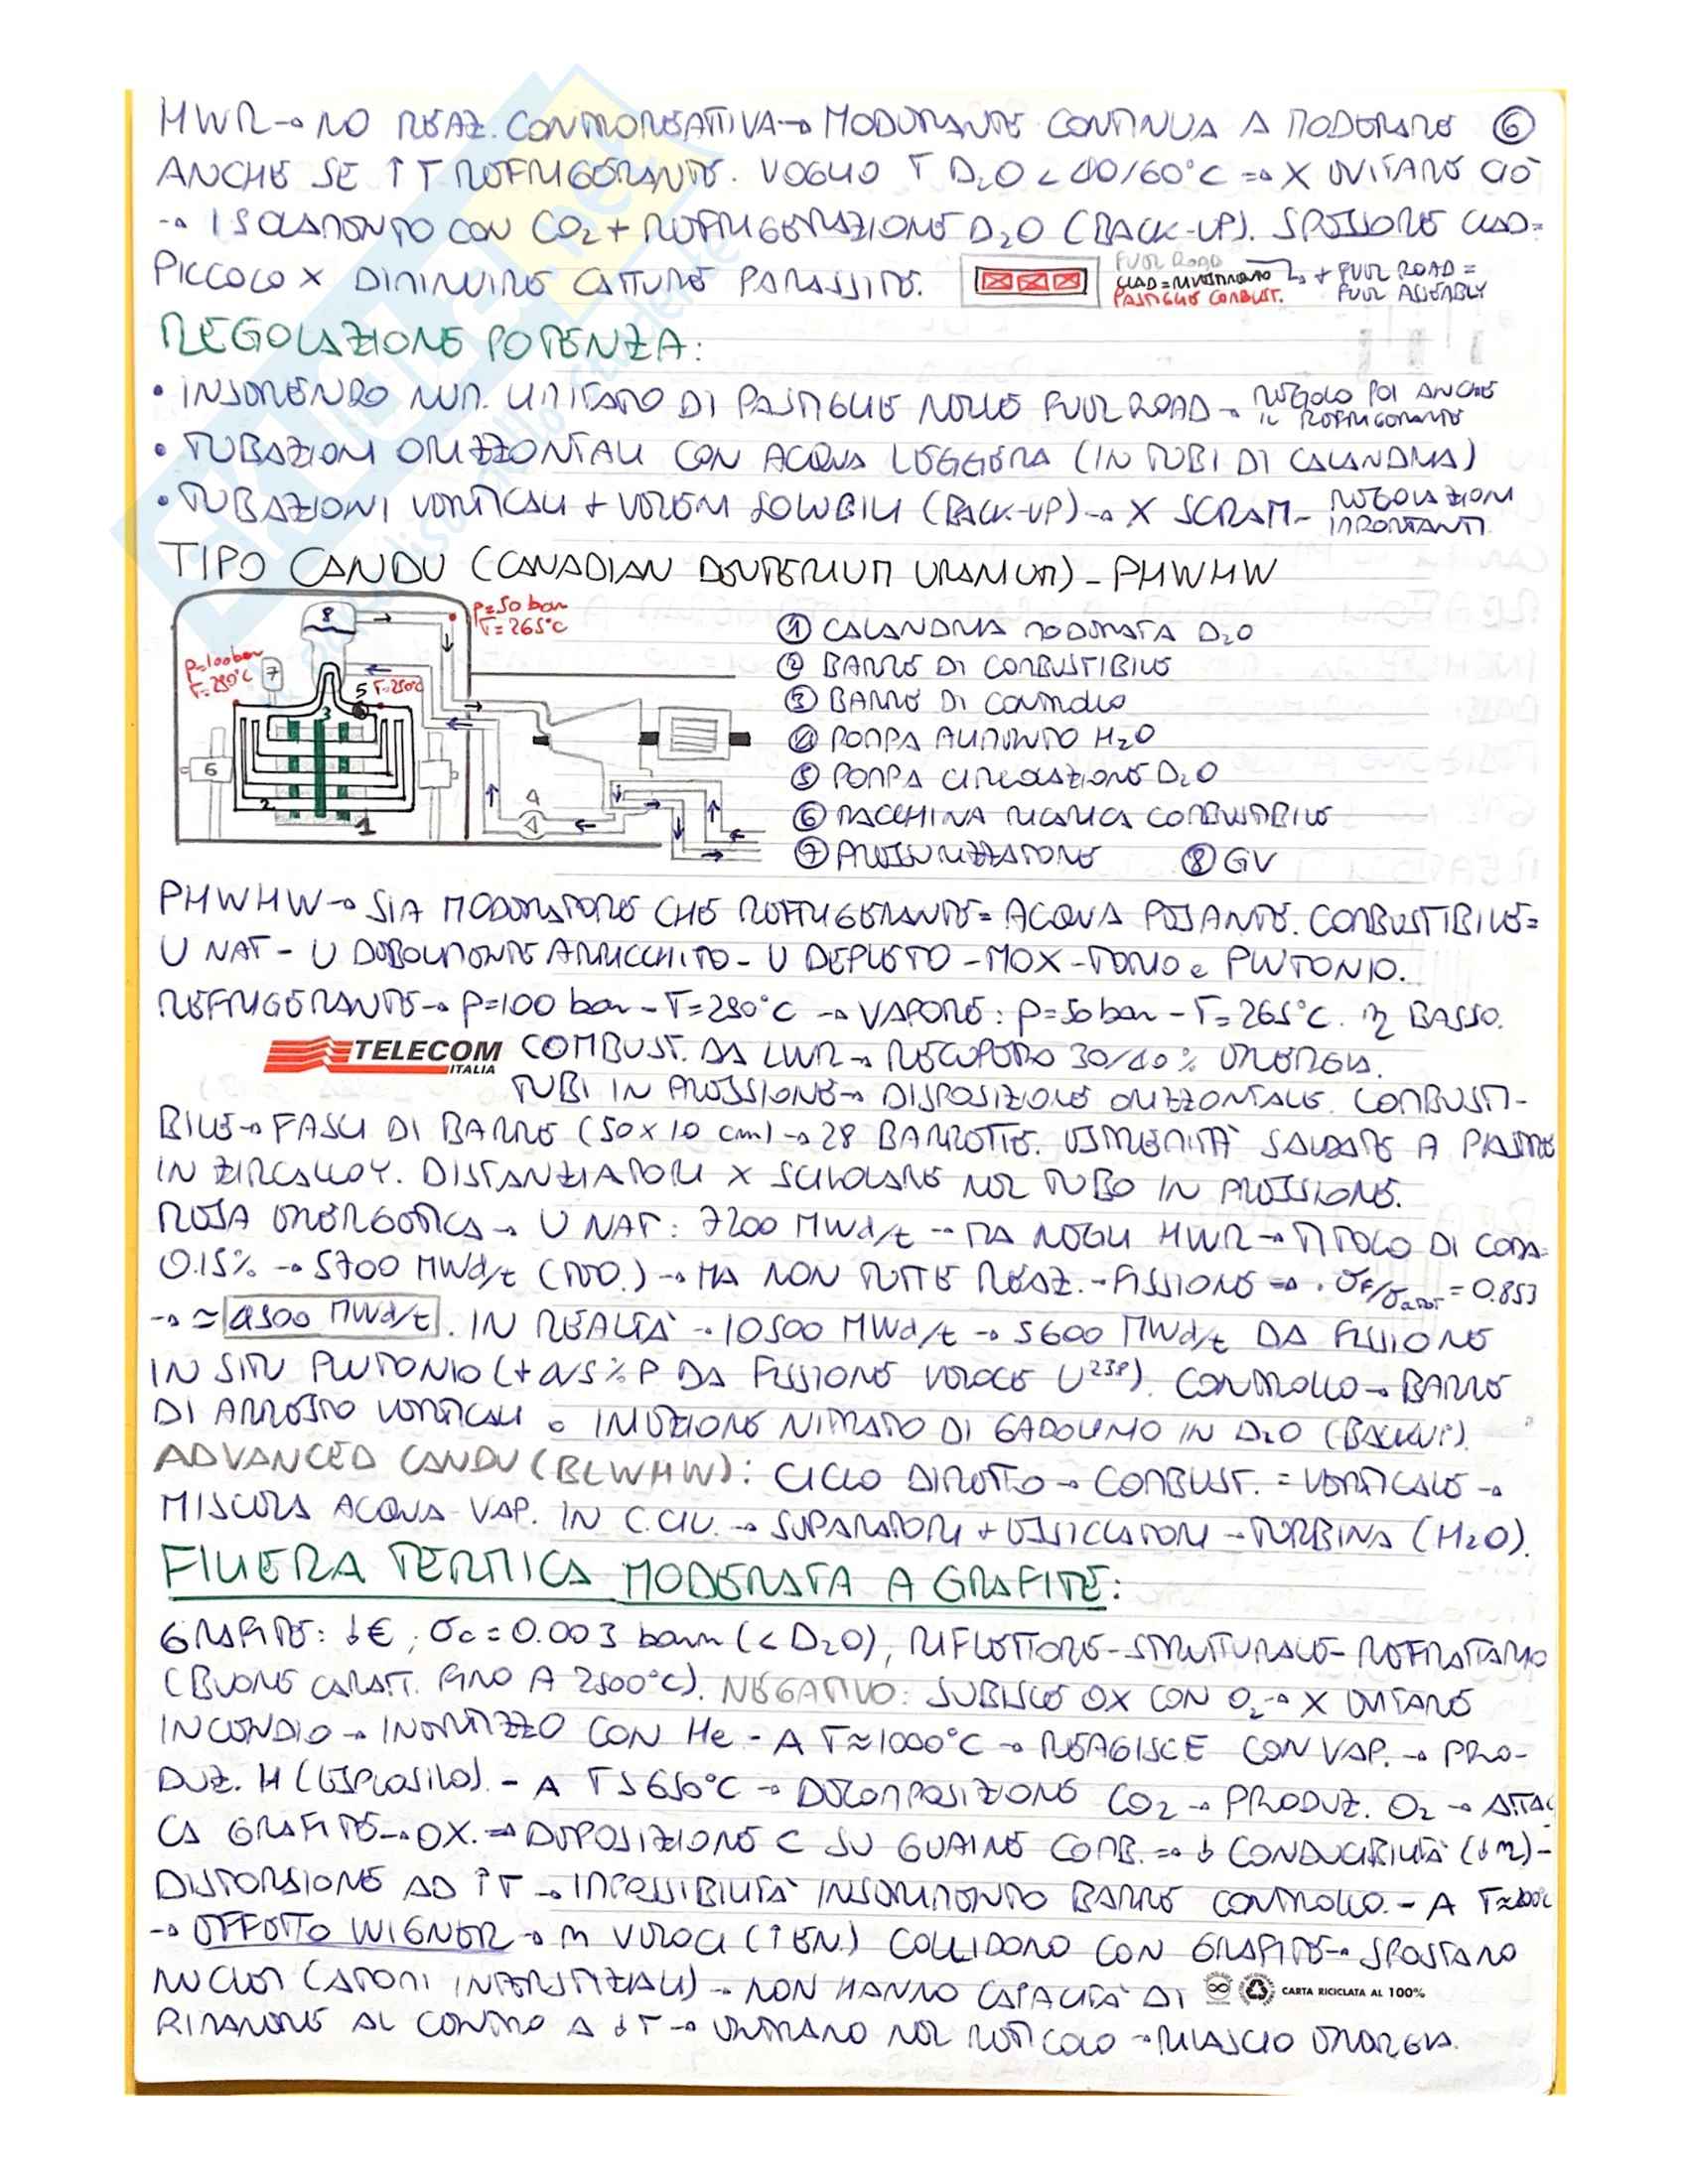 HWR → NO REAZ. CONTROREATTIVA → MODERANTE CONTINUA A MODERARE ⑥
ANCHE SE ↑ T REFRIGERANTE. VOGLIO T D₂O < 40/60°C ⇒ X EVITARE CIÒ
→ ISOLAMENTO CON CO₂ + REFRIGERAZIONE D₂O (BACK-UP). SPESSORE CLAD =
PICCOLO X DIMINUIRE CATTURE PARASSITE.
FUEL ROAD
CLAD = RIVESTIMENTO
PASTIGLIE COMBUST.
+ FUEL ROAD =
FUEL ASSEMBLY
REGOLAZIONE POTENZA:
• INSERENDO NUM. LIMITATO DI PASTIGLIE NELLE FUEL ROAD → REGOLO POI ANCHE
IL REFRIGERANTE
• TUBAZIONI ORIZZONTALI CON ACQUA LEGGERA (IN TUBI DI CALANDRIA)
• TUBAZIONI VERTICALI + VELENI SOLUBILI (BACK-UP) → X SCRAM - REGOLAZIONI
IMPORTANTI
TIPO CANDU (CANADIAN DEUTERIUM URANIUM) - PHWHW
P=50 bar
T=265°C
P=100bar
T=290°C
T=250°C
1 2 3 4 5 6 7 8
① CALANDRIA MODERATA D₂O
② BARRE DI COMBUSTIBILE
③ BARRE DI CONTROLLO
④ POMPA ALIMENTO H₂O
⑤ POMPA CIRCOLAZIONE D₂O
⑥ MACCHINA RICARICA COMBUSTIBILE
⑦ PRESSURIZZATORE ⑧ GV
PHWHW → SIA MODERATORE CHE REFRIGERANTE = ACQUA PESANTE. COMBUSTIBILE =
U NAT - U DEBOLMENTE ARRICCHITO - U DEPLETO - MOX - TORIO e PLUTONIO.
REFRIGERANTE → P=100 bar - T=290°C → VAPORE: P=50 bar - T=265°C. η BASSO.
TELECOM ITALIA
COMBUST. DA LWR → RECUPERO 30/40% ENERGIA.
TUBI IN PRESSIONE → DISPOSIZIONE ORIZZONTALE. COMBUSTI-
BILE → FASCI DI BARRE (50x10 cm) → 28 BARRETTE. ESTREMITÀ SALDATE A PIASTRE
IN ZIRCALLOY. DISTANZIATORI X SCIVOLARE NEL TUBO IN PRESSIONE.
RESA ENERGETICA → U NAT: 7200 MWd/t → MA NEGLI HWR → TITOLO DI CODA=
0.15% → 5700 MWd/t (TEO.) → MA NON TUTTE REAZ. = FISSIONE ⇒ · σF/σASS = 0.853
→ ≃ 4900 MWd/t. IN REALTÀ → 10500 MWd/t → 5600 MWd/t DA FISSIONE
IN SITU PLUTONIO (+ 4/5% P DA FISSIONE VELOCE U²³⁸). CONTROLLO → BARRE
DI ARRESTO VERTICALI o INIEZIONE NITRATO DI GADOLINIO IN D₂O (BACKUP).
ADVANCED CANDU (BLWHW): CICLO DIRETTO → COMBUST. = VERTICALE →
MISCELA ACQUA-VAP. IN C.CIL. → SEPARATORI + ESSICCATORI → TURBINA (H₂O).
FILIERA TERMICA MODERATA A GRAFITE:
GRAFITE: ↓€, σc = 0.003 barn (< D₂O), RIFLETTORE - STRUTTURALE - REFRATTARIO
(BUONE CARATT. FINO A 2500°C). NEGATIVO: SUBISCE OX CON O₂ → X EVITARE
INCENDIO → INERTIZZO CON He - A T≈1000°C → REAGISCE CON VAP. → PRO-
DUZ. H (ESPLOSIVO). - A T>650°C → DECOMPOSIZIONE CO₂ → PRODUZ. O₂ → ATTAC
CA GRAFITE → OX. ⇒ DEPOSIZIONE C SU GUAINE COMB. ⇒ ↓ CONDUCIBILITÀ (↓η) -
DISTORSIONE AD ↑T → IMPOSSIBILITÀ INSERIMENTO BARRE CONTROLLO. - A T≈
→ EFFETTO WIGNER → n VELOCI (↑EN.) COLLIDONO CON GRAFITE → SPOSTANO
NUCLEI (ATOMI INTERSTIZIALI) → NON HANNO CAPACITÀ DI
CARTA RICICLATA AL 100%
RIMANERE AL CENTRO A ↓T → ENTRANO NEL RETICOLO → RILASCIO ENERGIA.